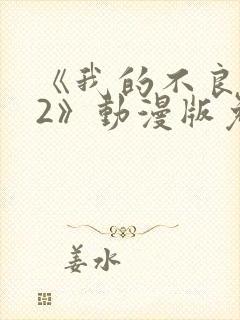 《我的不良
2》動漫版
姜水